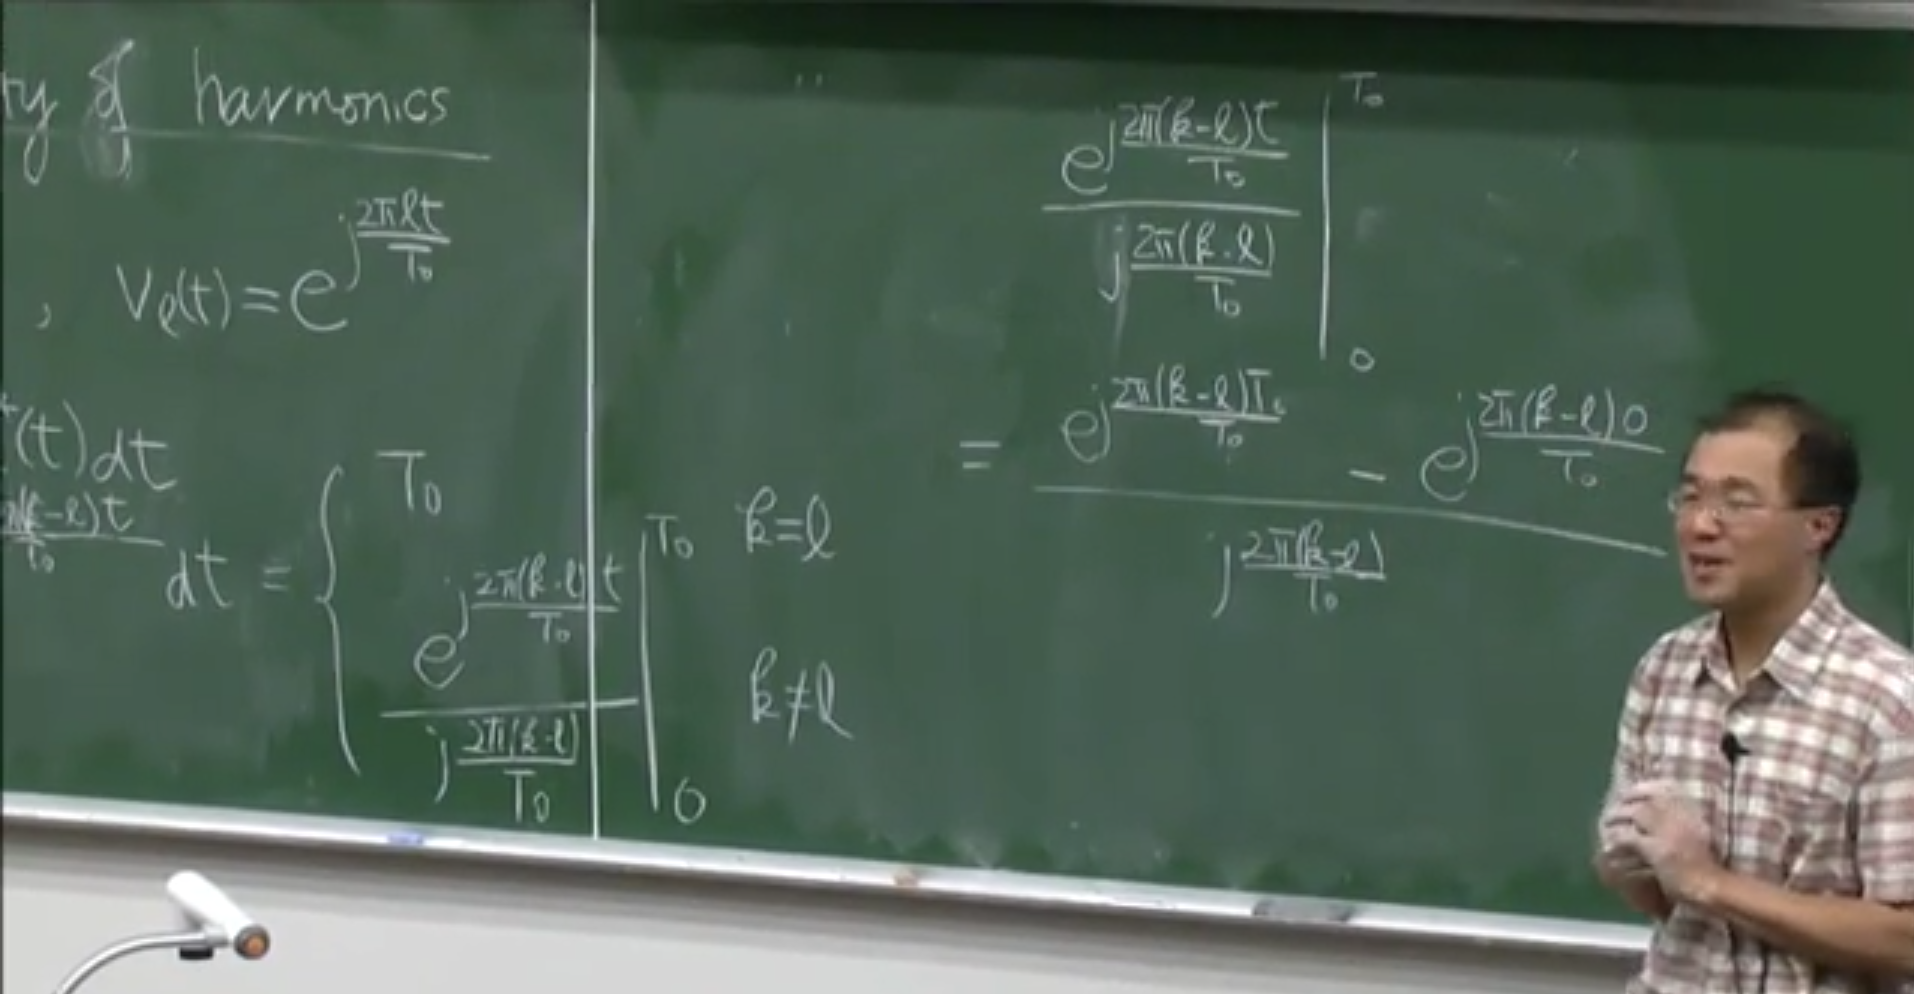 of harmonics
, V_ℓ(t) = e^{j\frac{2πℓt}{T_0}}
(t) dt
\frac{(k-ℓ)t}{T_0} dt = { T_0 k=ℓ
\frac{e^{j\frac{2π(k-ℓ)t}{T_0}}}{j\frac{2π(k-ℓ)}{T_0}} |_0^{T_0} k≠ℓ
\frac{e^{j\frac{2π(k-ℓ)t}{T_0}}}{j\frac{2π(k-ℓ)}{T_0}} |_0^{T_0}
= \frac{e^{j\frac{2π(k-ℓ)T_0}{T_0}} - e^{j\frac{2π(k-ℓ)0}{T_0}}}{j\frac{2π(k-ℓ)}{T_0}}